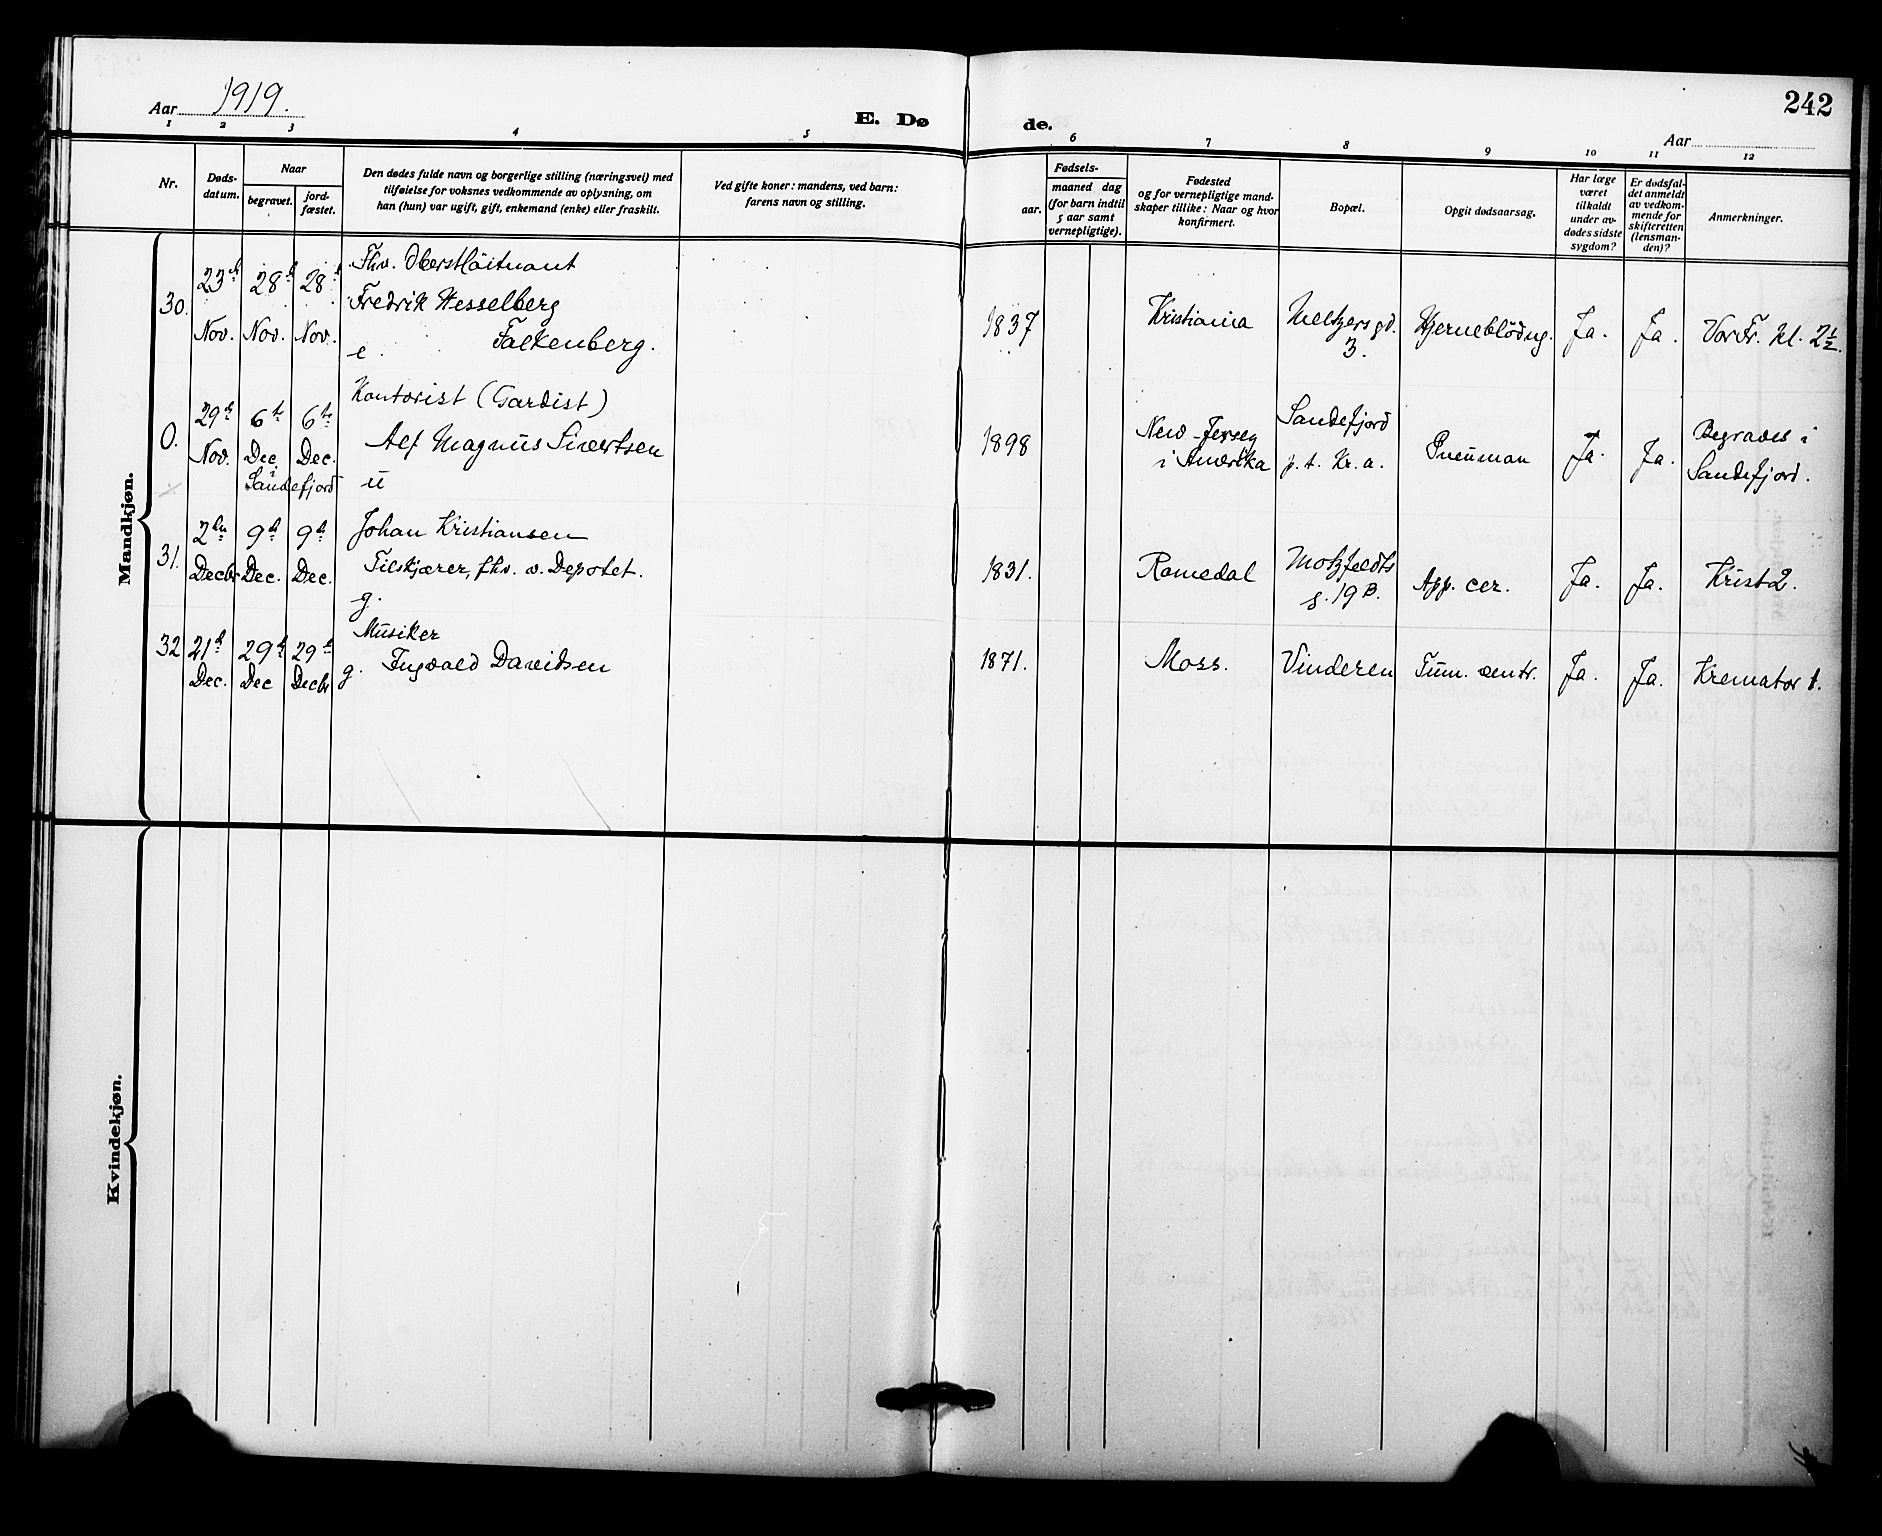 242
Aar 1919.
E. Døde.
Aar
1 2 3 4 5 6 7 8 9 10 11 12
Nr.
Døds-
datum.
Naar
begravet.
jord-
fæstet.
Den dødes fulde navn og borgerlige stilling (næringsvei) med
tilføielse for voksnes vedkommende av oplysning, om
han (hun) var ugift, gift, enkemand (enke) eller fraskilt.
Ved gifte koner: mandens, ved barn:
farens navn og stilling.
Fødsels-
aar.
maaned dag
(for barn indtil
5 aar samt
vernepligtige).
Fødested
og for vernepligtige mand-
skaper tillike: Naar og hvor
konfirmert.
Bopæl.
Opgit dødsaarsag.
Har læge
været
tilkaldt
under av-
dødes sidste
sygdom?
Er dødsfal-
det anmeldt
av vedkom-
mende for
skifteretten
(lensman-
den)?
Anmerkninger.
Mandkjøn.
30.
23de
Nov.
28de
Nov.
28de
Nov.
Fhv. Oberstløitnant
Fredrik Hesselberg
e. Falkenberg.
1837
Kristiania
Meltzersgd.
3.
Hjerneblödng.
Ja.
Ja.
Vor Fr. kl. 2½.
0.
29de
Nov.
6te
Dec.
6te
Dec.
i
Sandefjord
Kontorist (Gardist)
Alf Magnus Sivertsen
u
1898
New-Jersey
i Amerika
Sandefjord
p. t. Kr.a.
Pneumon
Ja.
Ja.
Begraves i
Sandefjord.
31.
2den
Decbr
9de
Dec.
9de
Dec.
Johan Kristiansen
Tilskjærer, fhv. v. Depotet.
g.
1831.
Romedal
Motzfeldts
g. 19 B.
App. cer.
Ja.
Ja.
Krist 2.
32
21de
Dec.
29de
Dec
29de
Decbr
Musiker
g. Ingvald Davidsen
1871.
Moss.
Vinderen
Tum. ventr.
Ja.
Ja.
Kremator 1.
Kvindekjøn.